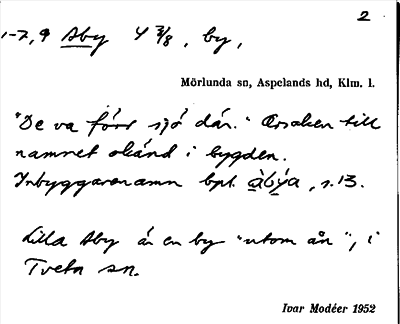 2
1-2, 9 Åby 4 7/8, by,
Mörlunda sn, Aspelands hd, Klm. l.
"De va förr sjö där." Orsaken till
namnet okänd i bygden.
Inbyggarenamn bpl. àbýa, s. 13.
Lilla Åby är en by "utom ån", i
Tveta sn.
Ivar Modéer 1952